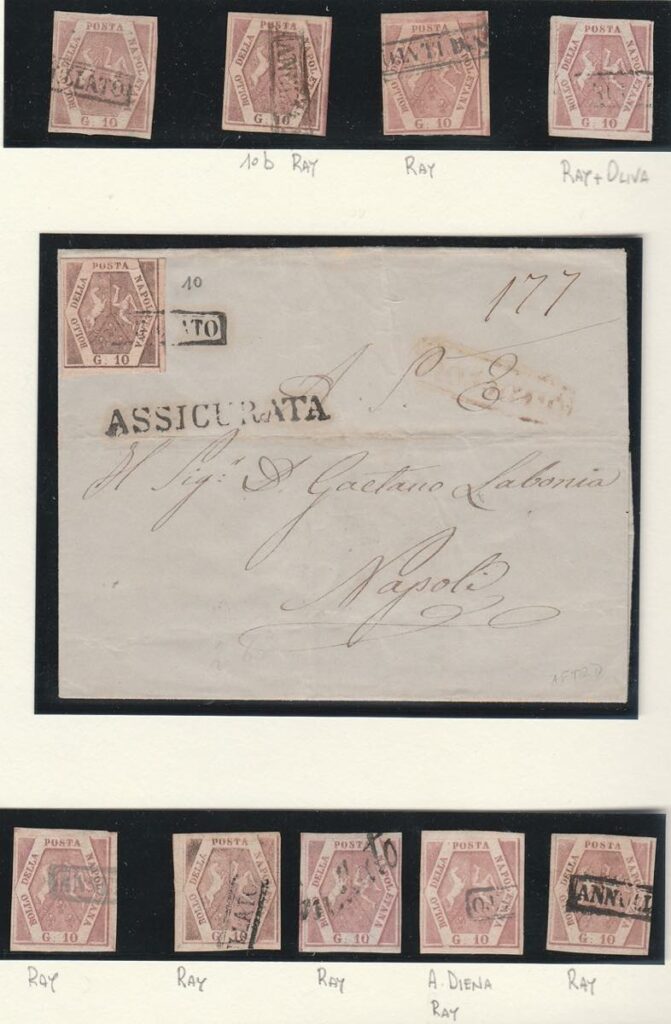 POSTA
BOLLO DELLA
NAPOLETANA
G. 10
LLATO
BOLLO DELLA
POSTA
NAPOLETANA
G. 10
ANNUL
BOLLO DELLA
NAPOLETANA
G. 10
POSTA
BOLLO DELLA
NAPOLETANA
G. 10
10b RAY
RAY
RAY + OLIVA
POSTA
BOLLO DELLA
NAPOLETANA
G. 10
LATO
10
177
A. S. E.
ASSICURATA
Il Sig.r D. Gaetano Labonia
Napoli
POSTA
BOLLO DELLA
NAPOLETANA
G. 10
POSTA
BOLLO DELLA
NAPOLETANA
G. 10
LLATO
POSTA
BOLLO DELLA
NAPOLETANA
G. 10
nullato
POSTA
BOLLO DELLA
NAPOLETANA
G. 10
TO
POSTA
BOLLO DELLA
NAPOLETANA
G. 10
ANNUL
RAY
RAY
RAY
A. DIENA
RAY
RAY